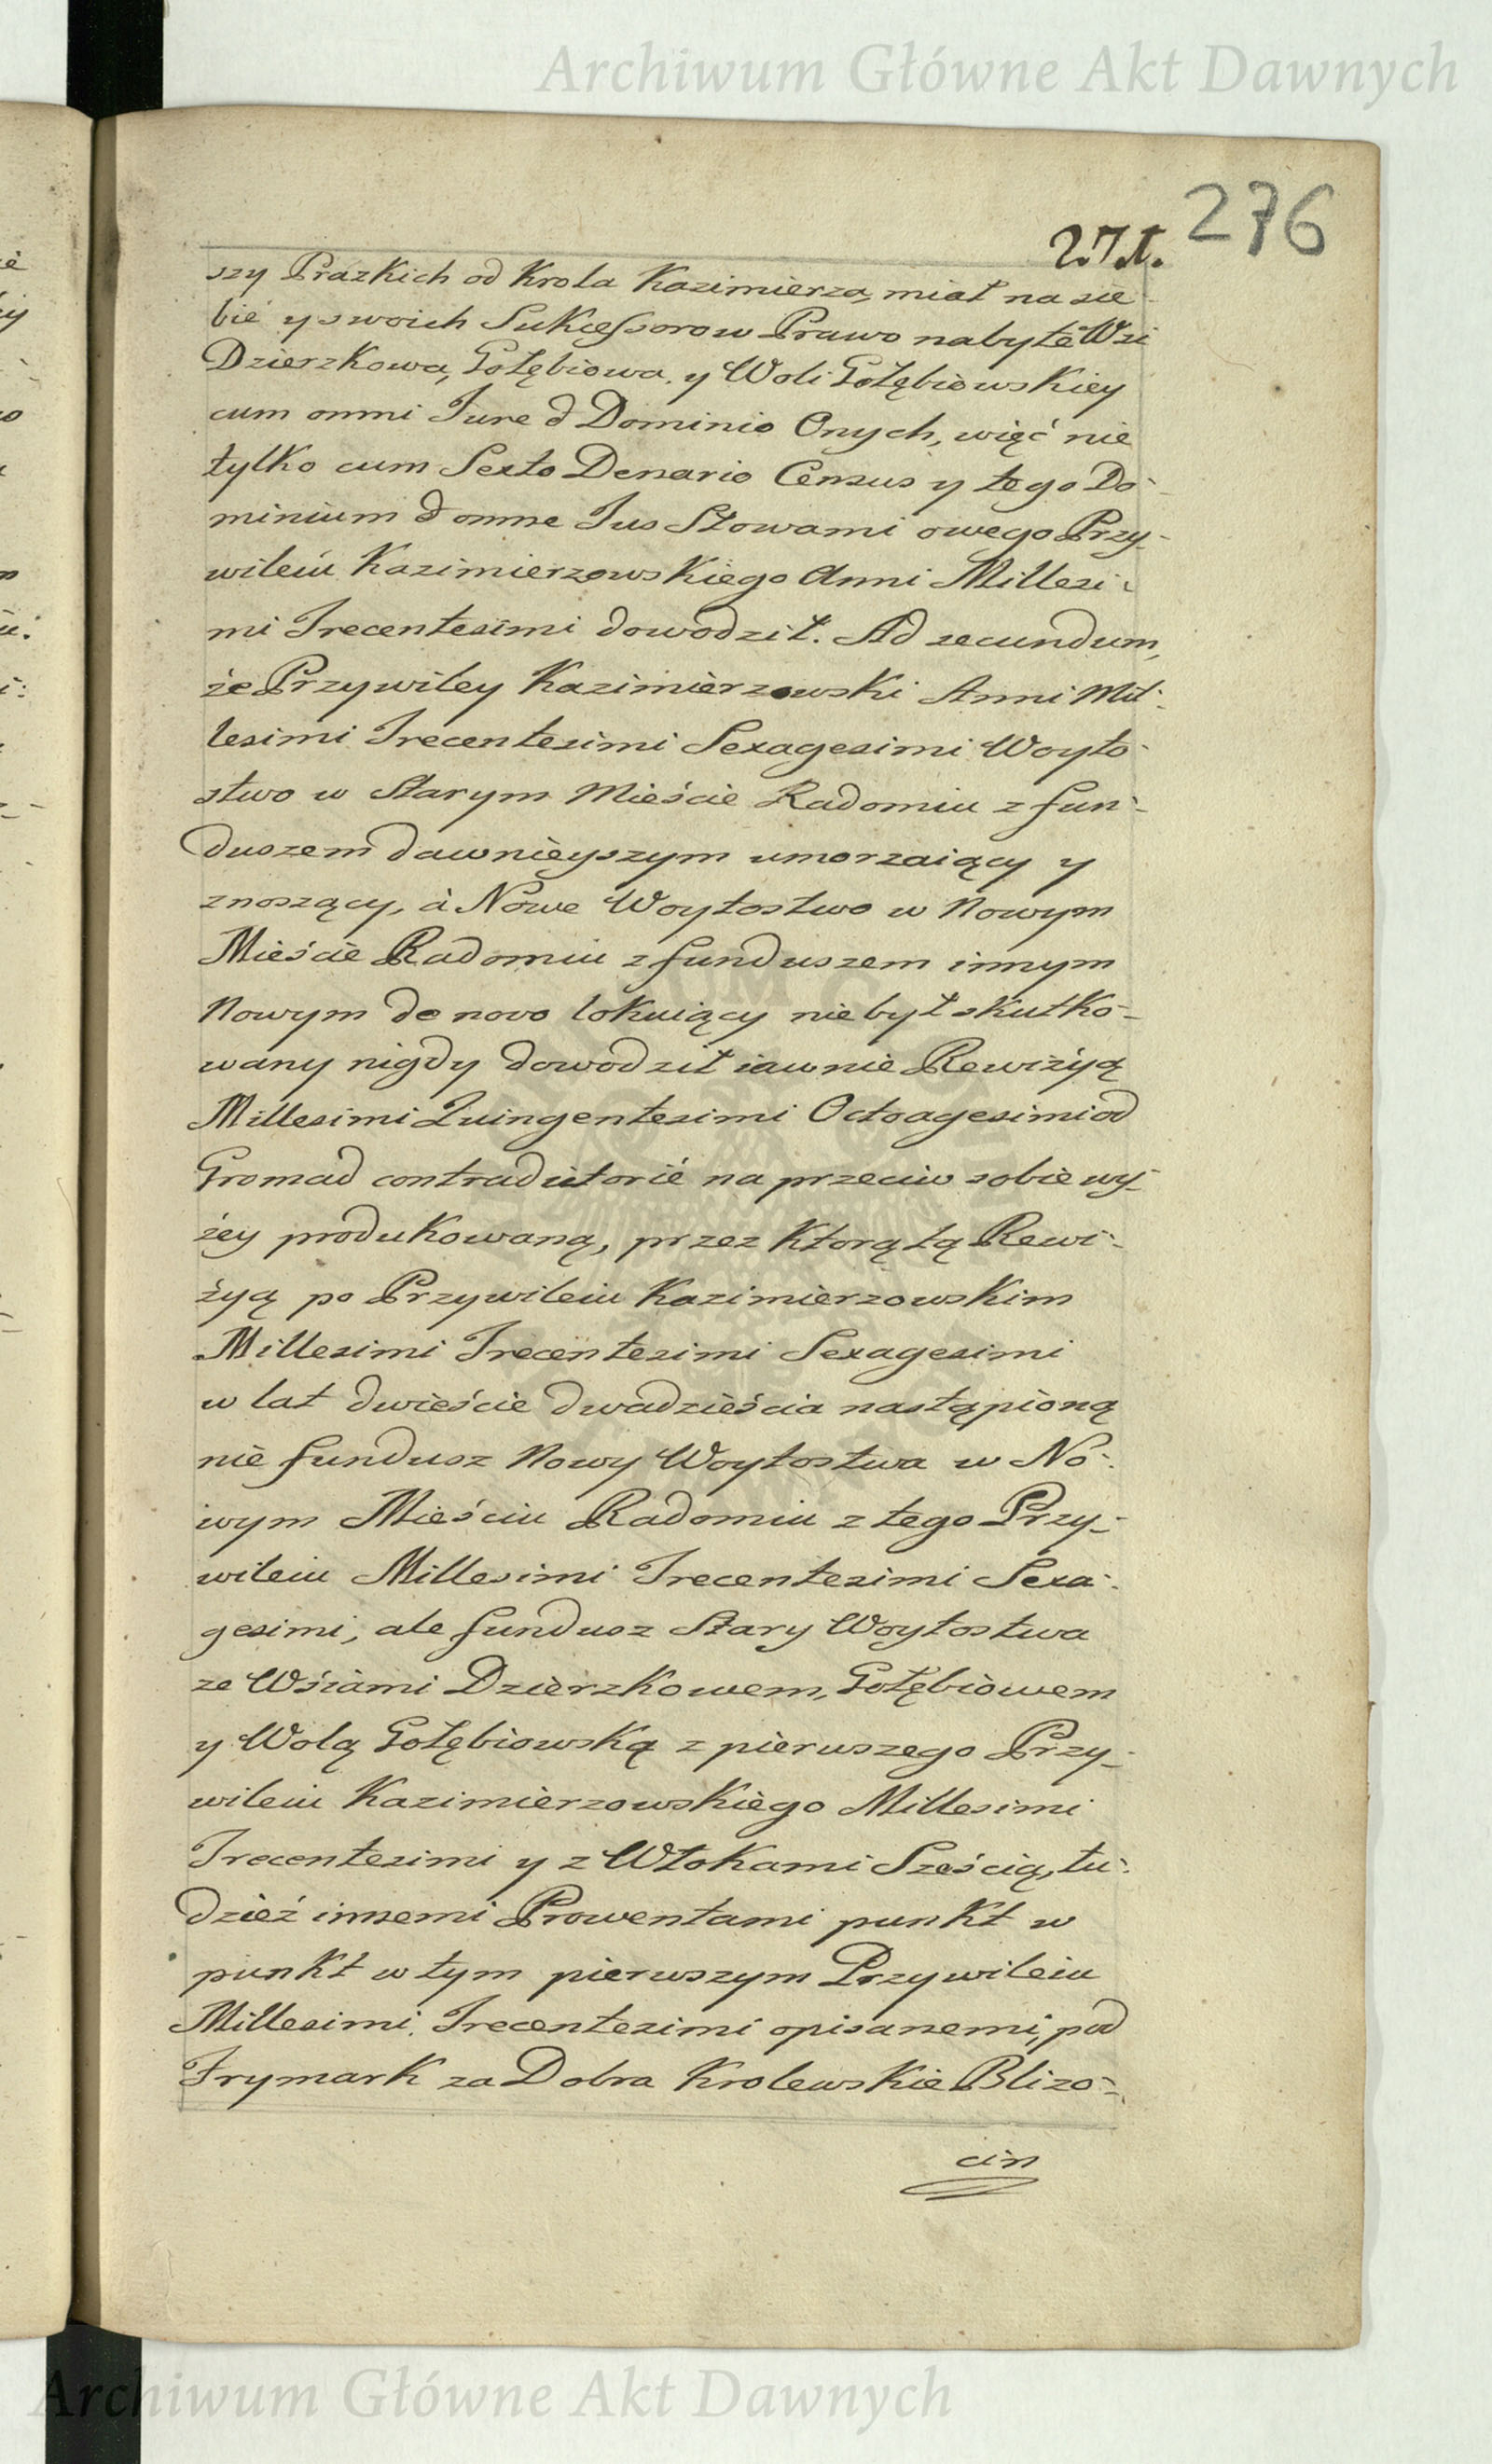 Archiwum Główne Akt Dawnych
276
271.
szy Prazkich od Krola Kazimierza, miał na sie
bie y swoich Sukcessorow Prawo nabyte Wsi
Dzierzkowa, Gołębiowa, y Woli Gołębiowskiey
cum omni Jure & Dominio Onych, więć nie
tylko cum Sexto Denario Census y tego Do-
minium & omne Jus Słowami owego Przy-
wileiu Kazimierzowskiego Anni Millesi-
mi Trecentesimi dowodził. Ad secundum,
że Przywiley Kazimierzowski Anni Mil-
lesimi Trecentesimi Sexagesimi Woyto-
stwo w Starym Mieście Radomiu z fun-
duszem dawnieyszym umorzaiący y
znoszący, à Nowe Woytostwo w Nowym
Mieście Radomiu z funduszem innym
Nowym de novo lokuiący nie był skutko-
wany nigdy dowodził iawnie Rewizyą
Millesimi Quingentesimi Octoagesimi od
Gromad contradictorié na przeciw sobie wy-
żey produkowaną, przez Ktorą tą Rewi-
zyą po Przywileiu Kazimierzowskim
Millesimi Trecentesimi Sexagesimi
w lat dwieście dwadzieścia nastąpioną
nie fundusz Nowy Woytostwa w No-
wym Mieściu Radomiu z tego Przy-
wileiu Millesimi Trecentesimi Sexa-
gesimi, ale fundusz Stary Woytostwa
ze Wsiami Dzierzkowem, Gołębiowem
y Wolą Gołębiowską z pierwszego Przy-
wileiu Kazimierzowskiego Millesimi
Trecentesimi y z Włokami Sześcią, tu-
dzież innemi Prowentami punkt w
punkt w tym pierwszym Przywileiu
Millesimi Trecentesimi opisanemi, pod
Frymark za Dobra Krolewskie Blizo-
cin
Archiwum Główne Akt Dawnych